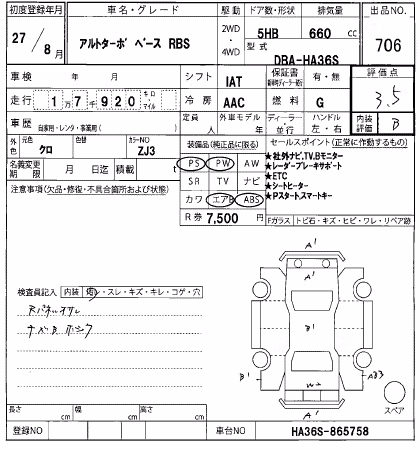 初度登録年月 車名・グレード 駆動 ドア数・形状 排気量 出品NO.
27/8月 アルトターボ ベース RBS 2WD・4WD 5HB 660 cc 706
型式 DBA-HA36S
車検 年 月 シフト IAT 保証書 有・無 評価点
走行 1万7千920 キロ マイル 冷房 AAC 燃料 G 3.5
車歴 自家用・レンタ・事業用( ) 定員 人 外車モデル 年 ディーラー・並行 ハンドル 左・右 内装評価 B
外色 元色 クロ 色替 カラーNO ZJ3
装備品(純正品に限る) セールスポイント(正常に作動するもの)
名義変更期限 月 日迄 積載 t
PS PW AW
SR TV ナビ
カワ エアB ABS
★社外ナビ,TV,Bモニター
★レーダーブレーキサポート
★ETC
★シートヒーター
★Pスタート,スマートキー
注意事項(欠品・修復・不具合箇所および状態)
R券 7,500円
Fガラス トビ石・キズ・ヒビ・ワレ・リペア跡
検査員記入 内装 汚レ・スレ・キズ・キレ・コゲ・穴
A1
B1
B1
AB3
W2
A1
スペア
長さ cm 幅 cm 高さ cm
登録NO 車台NO HA36S-865758